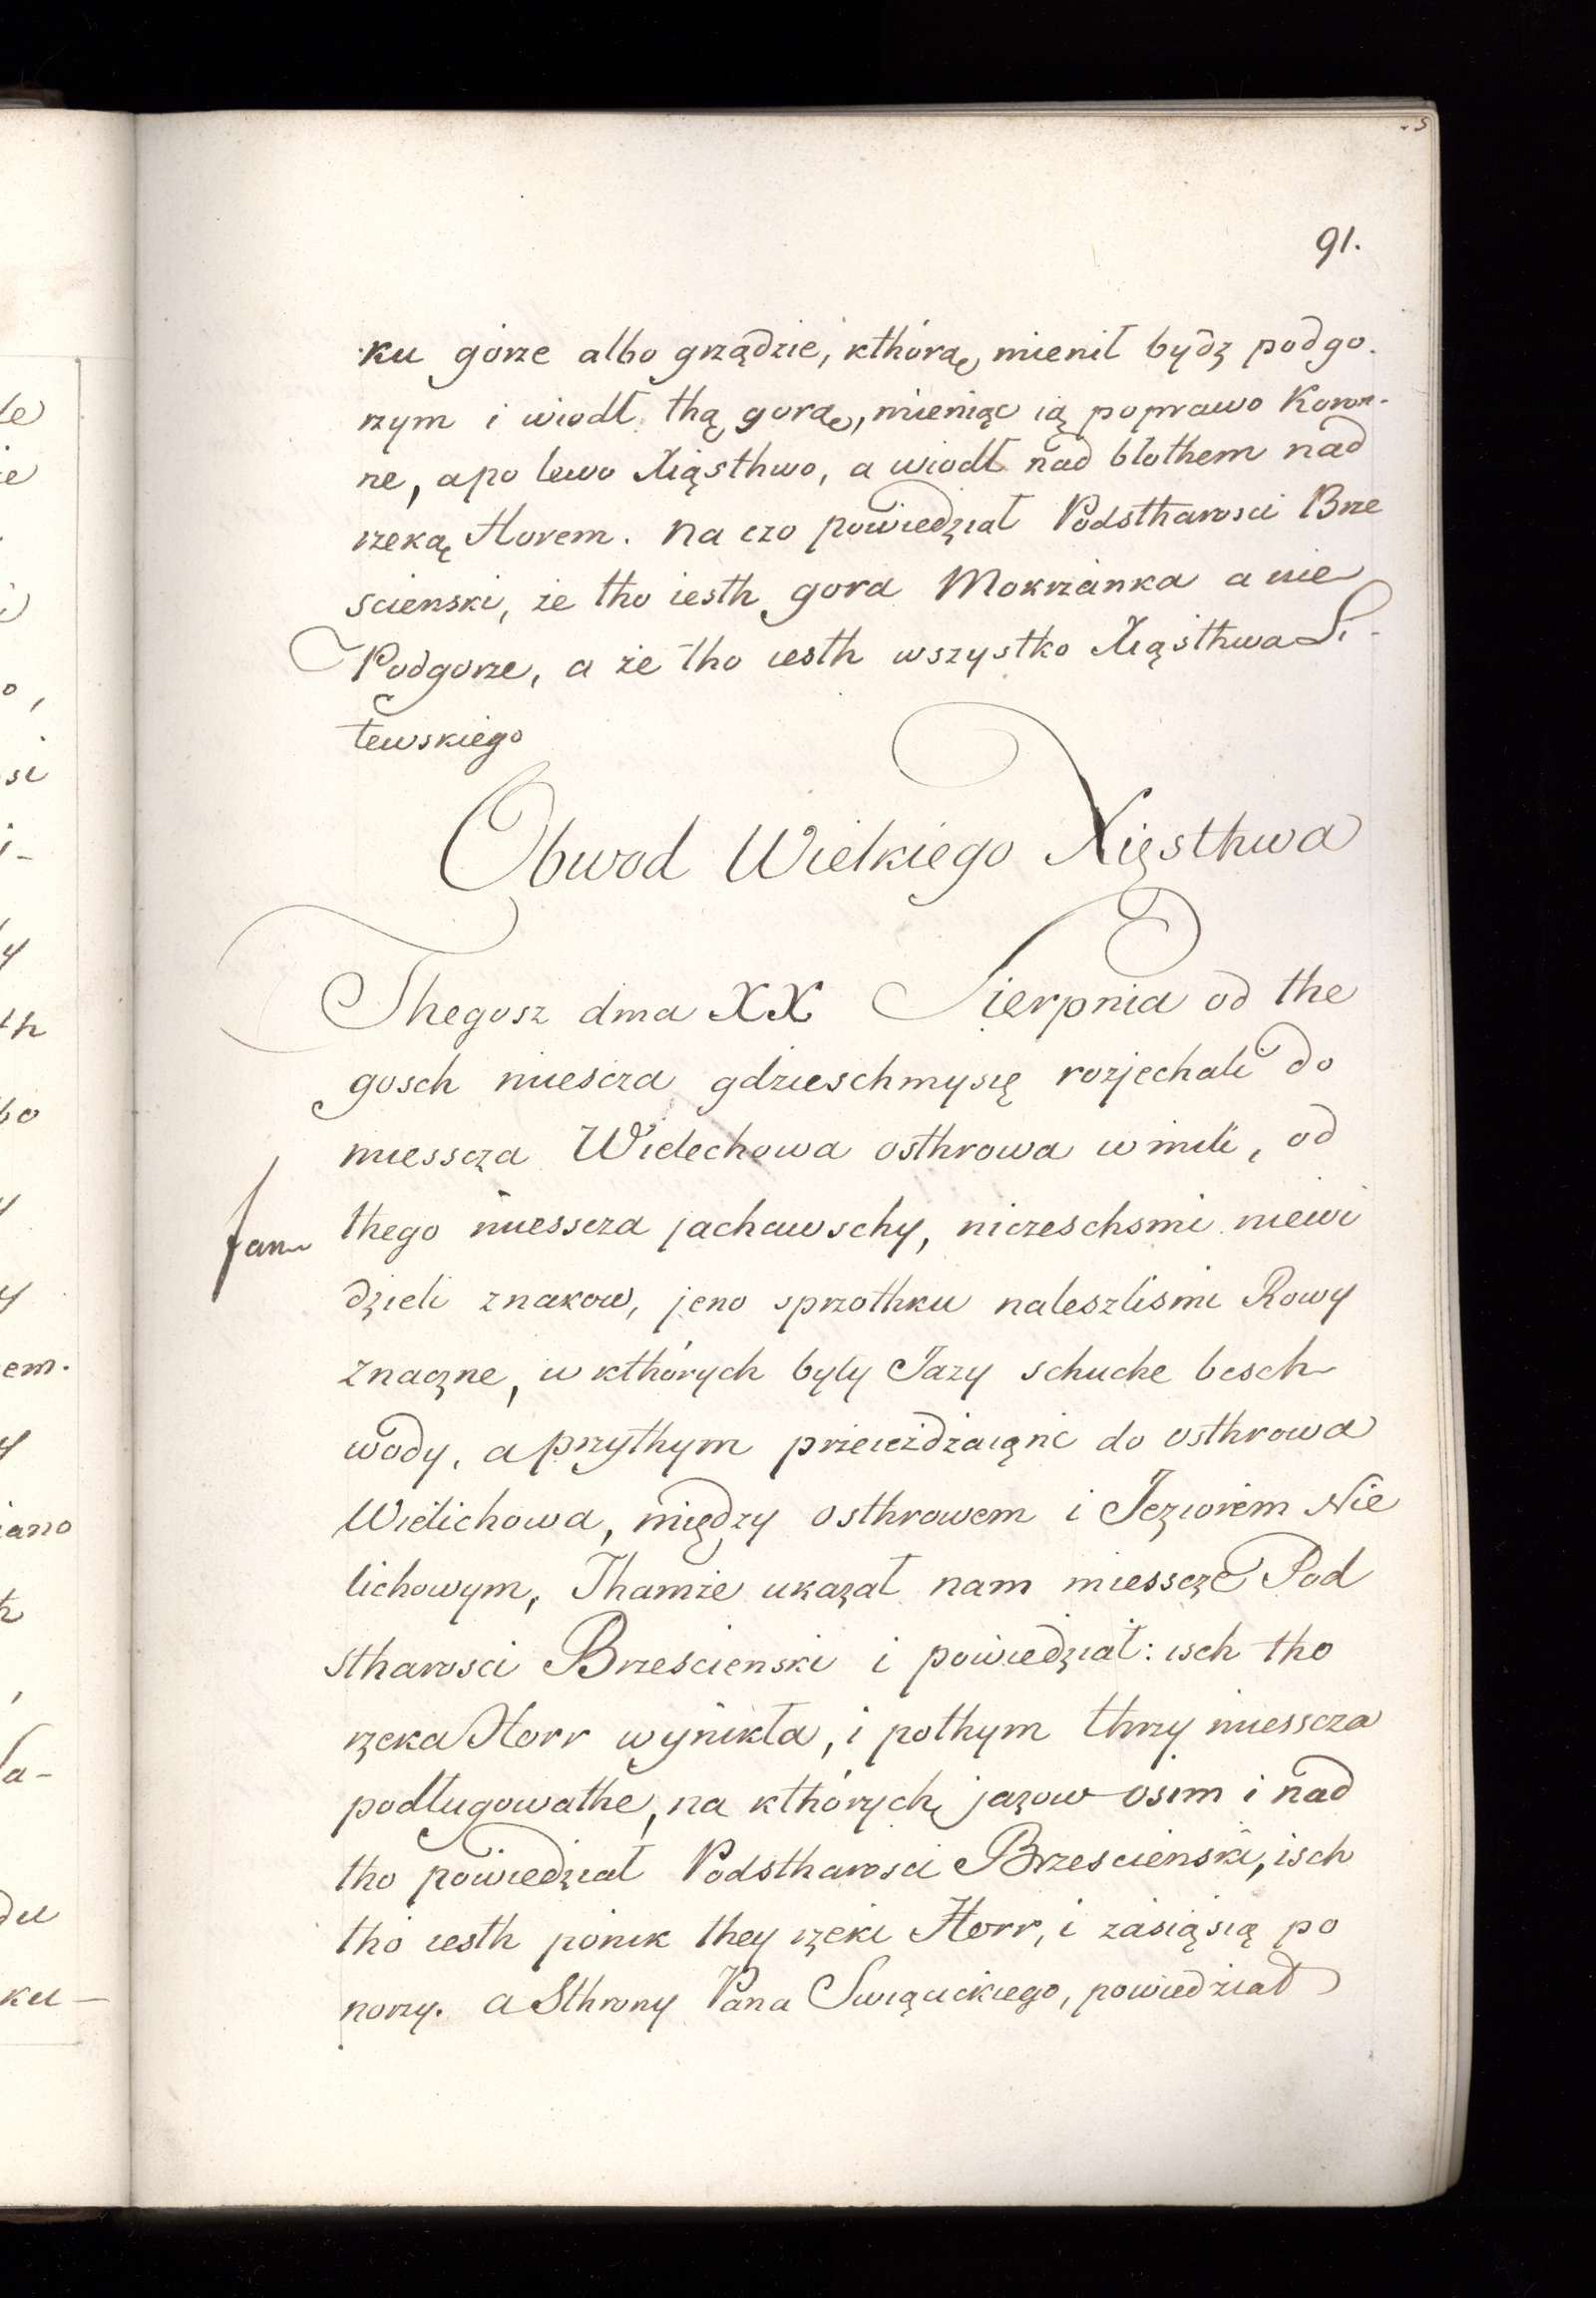 91.
ku górze albo grządzie, kthórą mienił bydź podgo-
rzym i wiodł thą gorą, mieniąc ią poprawo Koron-
ne, a po lewo Xiąsthwo, a wiodł nad błothem nad
rzeką Horem. Na czo powiedział Podstharosci Brze
scienski, że tho iesth gora Mokrzanka a nie
Podgorze, a że tho iesth wszystko Xiąsthwa Li-
tewskiego
Obwod Wielkiego Xięsthwa
Thegosz dnia XX Sierpnia od the
gosch miescza gdzieschmysię rozjechali do
miesscza Wielechowa osthrowa w mili, od
thego miesscza jachawschy, niczeschsmi niewi
dzieli znakow, jeno sprzothku naleszlismi Rowy
znaczne, w kthórych były Jazy schuche besch
wody, a przythym przeieżdżaiąnc do osthrowa
Wielichowa, między osthrowem i Jeziorem Nie
lichowym, Thamże ukazał nam miesscze Pod
stharosci Brzescienski i powiedział: isch tho
rzeka Horr wynikła, i pothym thrzy miesscza
podługowathe, na kthórych jazow osim i nad
tho powiedział Podstharosci Brzescienski, isch
tho iesth ponik they rzeki Horr, i zasiąsią po
norzy. a Sthrony Pana Swiącickiego, powiedział